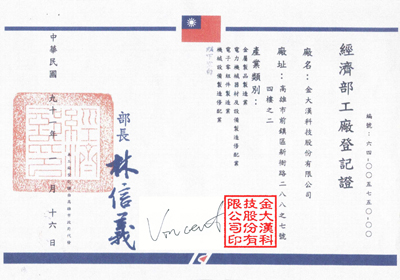 經濟部工廠登記證
編號：六四－○○五七五○－○○
廠名：金大漢科技股份有限公司
廠址：高雄市前鎮區新衙路二八八之七號
四樓之二
產業類別：
金屬製品製造業
電力機械器材及設備製造修配業
電子零組件製造業
機械設備製造修配業
部長 林信義
Vincent
金大漢科
技股份有
限公司印
中華民國 九十一年 一月 十六日